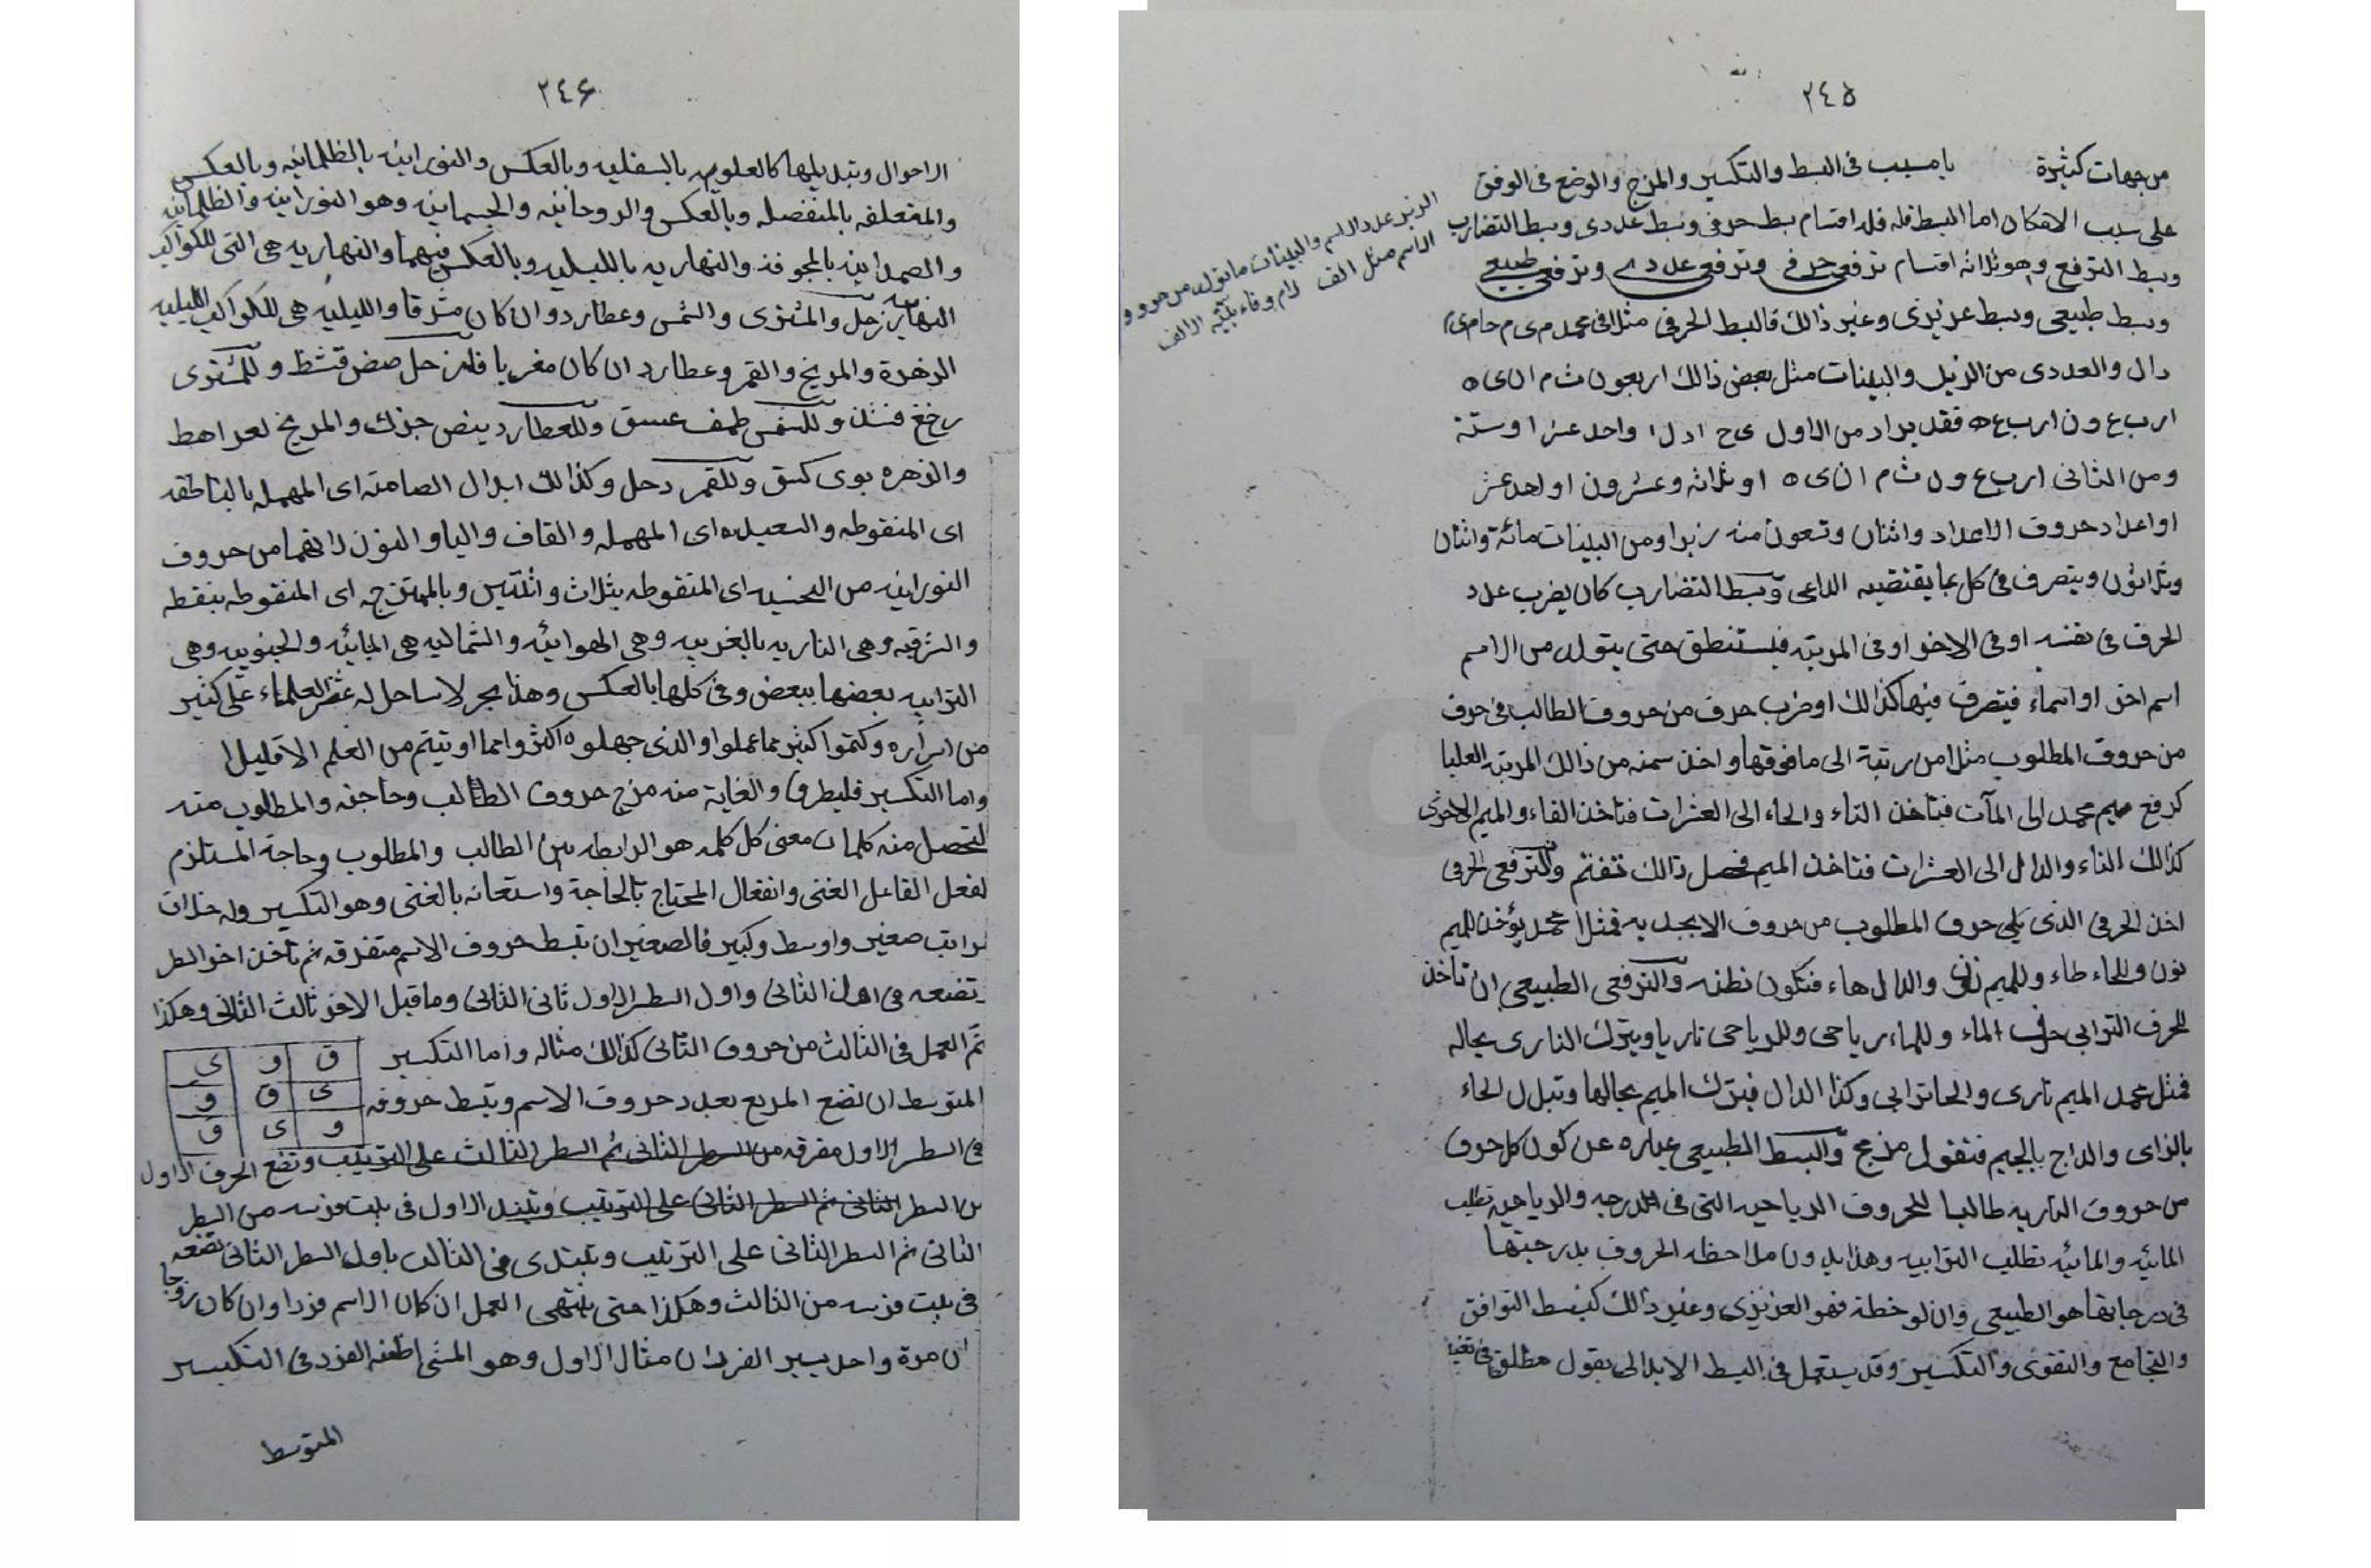 ٢٤٥
من جهات كثيرة يا مسبب فى البسط والتكسير والمزج والوضع فى الوفق
على سبب الامكان اما البسط فله اقسام بسط حرفى وبسط عددى وبسط التضارب
وبسط الترفع وهو ثلاثه اقسام ترفعى حرفى وترفعى عددى وترفعى طبيعى
وبسط طبيعى وبسط عزيزى وغير ذالك فالبسط الحرفى مثلا فى محمد م ى م ح ا م ى م
دال والعددى من الزبر والبينات مثل بعض ذالك اربعون ث م ا ن ى ه
ا ر ب ع و ن ا ر ب ع ه فقد يراد من الاول ى ح ا د ل ا واحد عشر او ستة
ومن الثانى ا ر ب ع و ن ث م ا ن ى ه او ثلاثه وعشرون او احد عشر
او اعداد حروف الاعداد واثنان وتسعون منه زبرا ومن البينات مائة واثنان
وثلاثون ويتصرف فى كل بما يقتضيه الداعى وبسط التضارب كان يضرب عدد
الحرف فى نفسه او فى الاخر او فى المرتبه فيستنطق حتى يتولد من الاسم
اسم اخر او اسماء فيتصرف فيها كذالك او ضرب حرف من حروف الطالب فى حرف
من حروف المطلوب مثلا من رتبة الى ما فوقها واخذ سمنه من ذالك المرتبه العليا
كرفع ميم محمد الى المآت فتاخذ التاء والحاء الى العشرات فتاخذ الفاء والميم الاخرى
كذالك التاء والدال الى العشرات فتاخذ الميم فحصل ذالك تفتم والترفعى الحرفى
اخذ الحرفى الذى يلى حرف المطلوب من حروف الابجديه فمثلا محمد يؤخذ للميم
نون وللحاء طاء وللميم نون وللدال هاء فتكون نطنه والترفعى الطبيعى ان تاخذ
للحرف الترابى حرف الماء وللماء رياحى وللرياحى ناريا ويترك النارى بحاله
فمثل محمد الميم نارى والحا ترابى وكذا الدال فيترك الميم بحالها وتبدل الحاء
بالزاى والداج بالجيم فتقول مزمج والبسط الطبيعى عباره عن كون كل حرف
من حروف الناريه طالبا للحروف الرياحيه التى فى الدرجه والرياحيه تطلب
المائيه والمائيه تطلب الترابيه وهذا بدون ملاحظه الحروف بدرجيتها
فى درجاتها هو الطبيعى وان لوحظة فهو العزيزى وغير ذالك كبسط التوافق
والتجامع والتقوى والتكسير وقد يستعمل فى البسط الابدالى بقول مطلق فى تغير
الزبر عدد الاسم والبينات ما يتولد من حروف
الاسم مثل الف لام وفاء بينه الالف
٢٤٦
الاحوال وتبديلها كالعلويه بالسفليه وبالعكس والنورانيه بالظلمانيه وبالعكس
والمتعلقه بالمنفصله وبالعكس والروحانيه والجسمانيه وهو النورانيه والظلمانيه
والصمدانيه بالمجوفه والنهاريه بالليليه وبالعكس فيهما والنهاريه هى التى للكواكب
النهاريه زحل والمشترى والشمس وعطارد وان كان مشرقا والليليه هى للكواكب الليليه
الزهرة والمريخ والقمر وعطارد ان كان مغربا فلزحل صضر قثظ وللمشترى
رخغ فثن وللشمس طمف عسق وللعطارد ينص جزك والمريخ لعد اهط
والزهره بوى كسق وللقمر دحل وكذالك ابدال الصامته اى المهمله بالناطقه
اى المنقوطه والسعيده اى المهمله والقاف واليا والنون لانهما من حروف
النورانيه من النحسيه اى المنقوطه بثلاث واثنتين وبالممتزجه اى المنقوطه بنقطه
والشرقيه وهى الناريه بالغربيه وهى الهوائيه والشماليه هى المائيه والجنوبيه وهى
الترابيه بعضها ببعض وفى كلها بالعكس وهذا بحر لا ساحل له عثر العلماء على كثير
من اسراره وكتموا كثير مما عملوا والذى جهلوه اكثر وما اوتيتم من العلم الا قليلا
واما التكسير فليطرق والغاية منه مزج حروف الطالب وحاجته والمطلوب منه
لتحصل منه كلمات معنى كل كلمه هو الرابطه بين الطالب والمطلوب وحاجة المستلزم
لفعل الفاعل الغنى وانفعال المحتاج بالحاجة واستعانه بالغنى وهو التكسير وله ثلاث
مراتب صغير واوسط وكبير فالصغير ان تبسط حروف الاسم متفرقه ثم تاخذ اخر السطر
تضعه فى اول الثانى واول السطر الاول ثانى الثانى وما قبل الاخر ثالث الثانى وهكذا
ثم العمل فى الثالث من حروف الثانى كذالك مثاله واما التكسير
ق و ى
ى ق و
و ى ق
المتوسط ان تضع المربع بعدد حروف الاسم وتبسط حروفه
فى السطر الاول مفرقه من السطر الثانى ثم السطر الثالث على الترتيب وتضع الحرف الاول
من السطر الثانى ثم السطر الثانى على الترتيب وتبتدء الاول فى بيت فرسه من السطر
الثانى ثم السطر الثانى على الترتيب وتبتدى فى الثالث باول السطر الثانى تضعه
فى بيت فرسه من الثالث وهكذا حتى ينتهى العمل ان كان الاسم فردا وان كان زوجا
ان مرة واحد يسير الفرسان مثال الاول وهو المشى لطفه الفرد فى التكسير
المتوسط